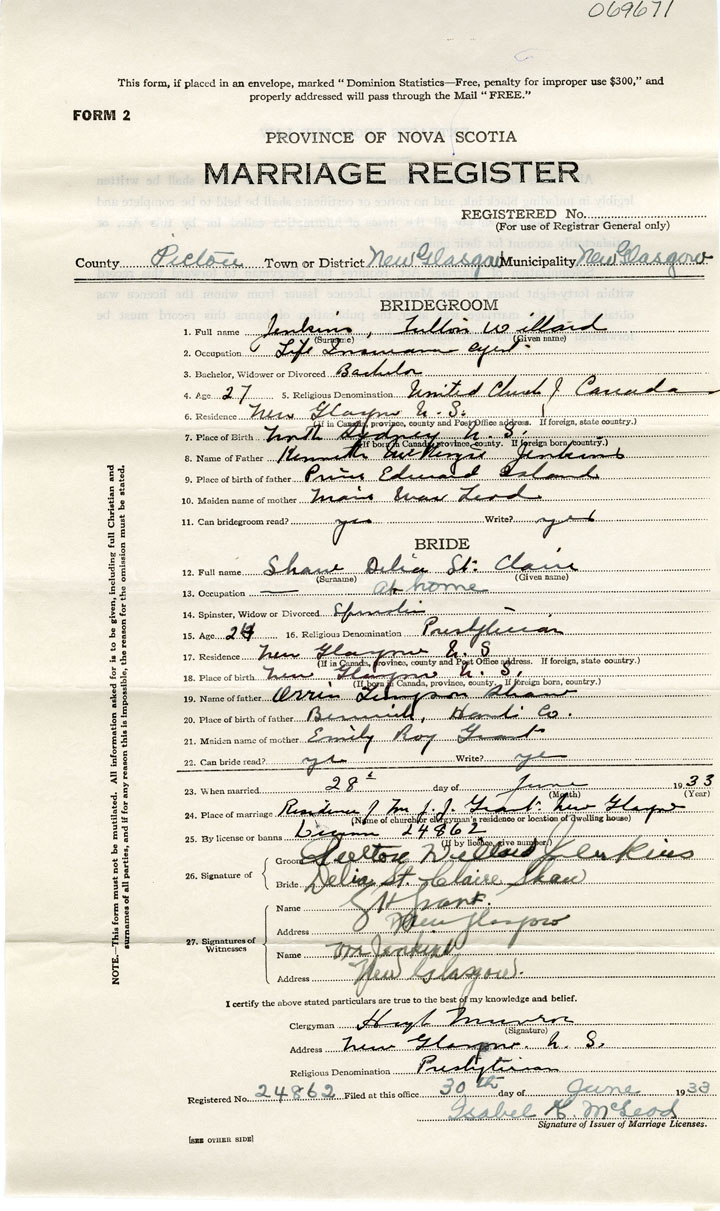 069671
This form, if placed in an envelope, marked “ Dominion Statistics—Free, penalty for improper use $300,” and
properly addressed will pass through the Mail “ FREE.”
FORM 2
PROVINCE OF NOVA SCOTIA
MARRIAGE REGISTER
REGISTERED No.
(For use of Registrar General only)
County Pictou Town or District New Glasgow Municipality New Glasgow
BRIDEGROOM
1. Full name Jenkins, Fulton Willard
(Surname) (Given name)
2. Occupation Life Insurance agent
3. Bachelor, Widower or Divorced Bachelor
4. Age 27 5. Religious Denomination United Church of Canada
6. Residence New Glasgow N. S.
(If in Canada, province, county and Post Office address. If foreign, state country.)
7. Place of Birth North Sydney N. S.
(If born in Canada, province, county. If foreign born, country.)
8. Name of Father Kenneth McKenzie Jenkins
9. Place of birth of father Prince Edward Island
10. Maiden name of mother
11. Can bridegroom read? yes Write? yes
BRIDE
12. Full name Shaw Delia St. Claire
(Surname) (Given name)
13. Occupation — at home
14. Spinster, Widow or Divorced Spinster
15. Age 24 16. Religious Denomination Presbyterian
17. Residence New Glasgow N. S
(If in Canada, province, county and Post Office address. If foreign, state country.)
18. Place of birth New Glasgow N. S.
(If born in Canada, province, county. If foreign born, country.)
19. Name of father Orrin Shaw
20. Place of birth of father Hants Co.
21. Maiden name of mother Emily Roy Grant
22. Can bride read? yes Write? yes
23. When married 28th day of June 1933
(Month) (Year)
24. Place of marriage Residence of J. J. Grant New Glasgow
(Name of church or clergyman's residence or location of dwelling house)
25. By license or banns License 24862
(If by licence, give number)
26. Signature of
Groom Fulton Willard Jenkins
Bride Delia St. Claire Shaw
27. Signatures of Witnesses
Name Grant.
Address New Glasgow
Name Jenkins
Address New Glasgow.
I certify the above stated particulars are true to the best of my knowledge and belief.
Clergyman Hugh Munroe
(Signature)
Address New Glasgow. N. S.
Religious Denomination Presbyterian
Registered No. 24862 Filed at this office 30th day of June 1933
Isabel G. McLeod
Signature of Issuer of Marriage Licenses.
[SEE OTHER SIDE]
NOTE.—This form must not be mutilated. All information asked for is to be given, including full Christian and
surnames of all parties, and if for any reason this is impossible, the reason for the omission must be stated.